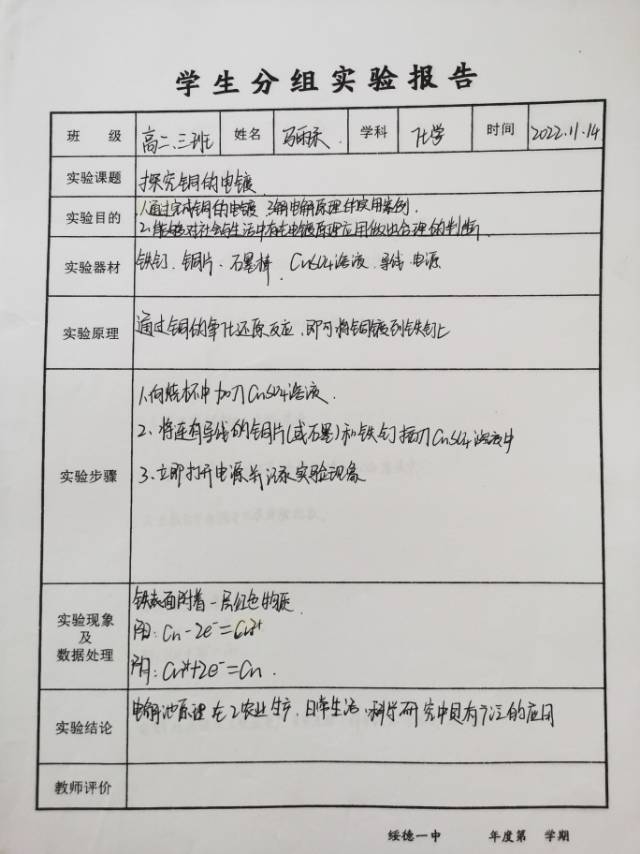 学生分组实验报告
班 级 高二、三班 姓名 学科 化学 时间 2022.11.14
实验课题 探究铜的电镀
实验目的 1.通过完成铜的电镀 了解电解原理的实用案例.
2.能够对社会与生活中有关电镀原理应用做出合理的判断.
实验器材 铁钉、铜片、石墨棒、CuSO4溶液、导线、电源
实验原理 通过铜的氧化还原反应,即可将铜镀到铁钉上
1.向烧杯中加入CuSO4溶液.
2、将连有导线的铜片(或石墨)和铁钉插入CuSO4溶液中
实验步骤 3、立即打开电源并记录实验现象
铁表面附着一层红色物质
实验现象
及
数据处理
阳:Cu-2e⁻=Cu²⁺
阴:Cu²⁺+2e⁻=Cu.
实验结论 电解池原理在工农业生产、日常生活、科学研究中具有广泛的应用
教师评价
绥德一中 年度第 学期